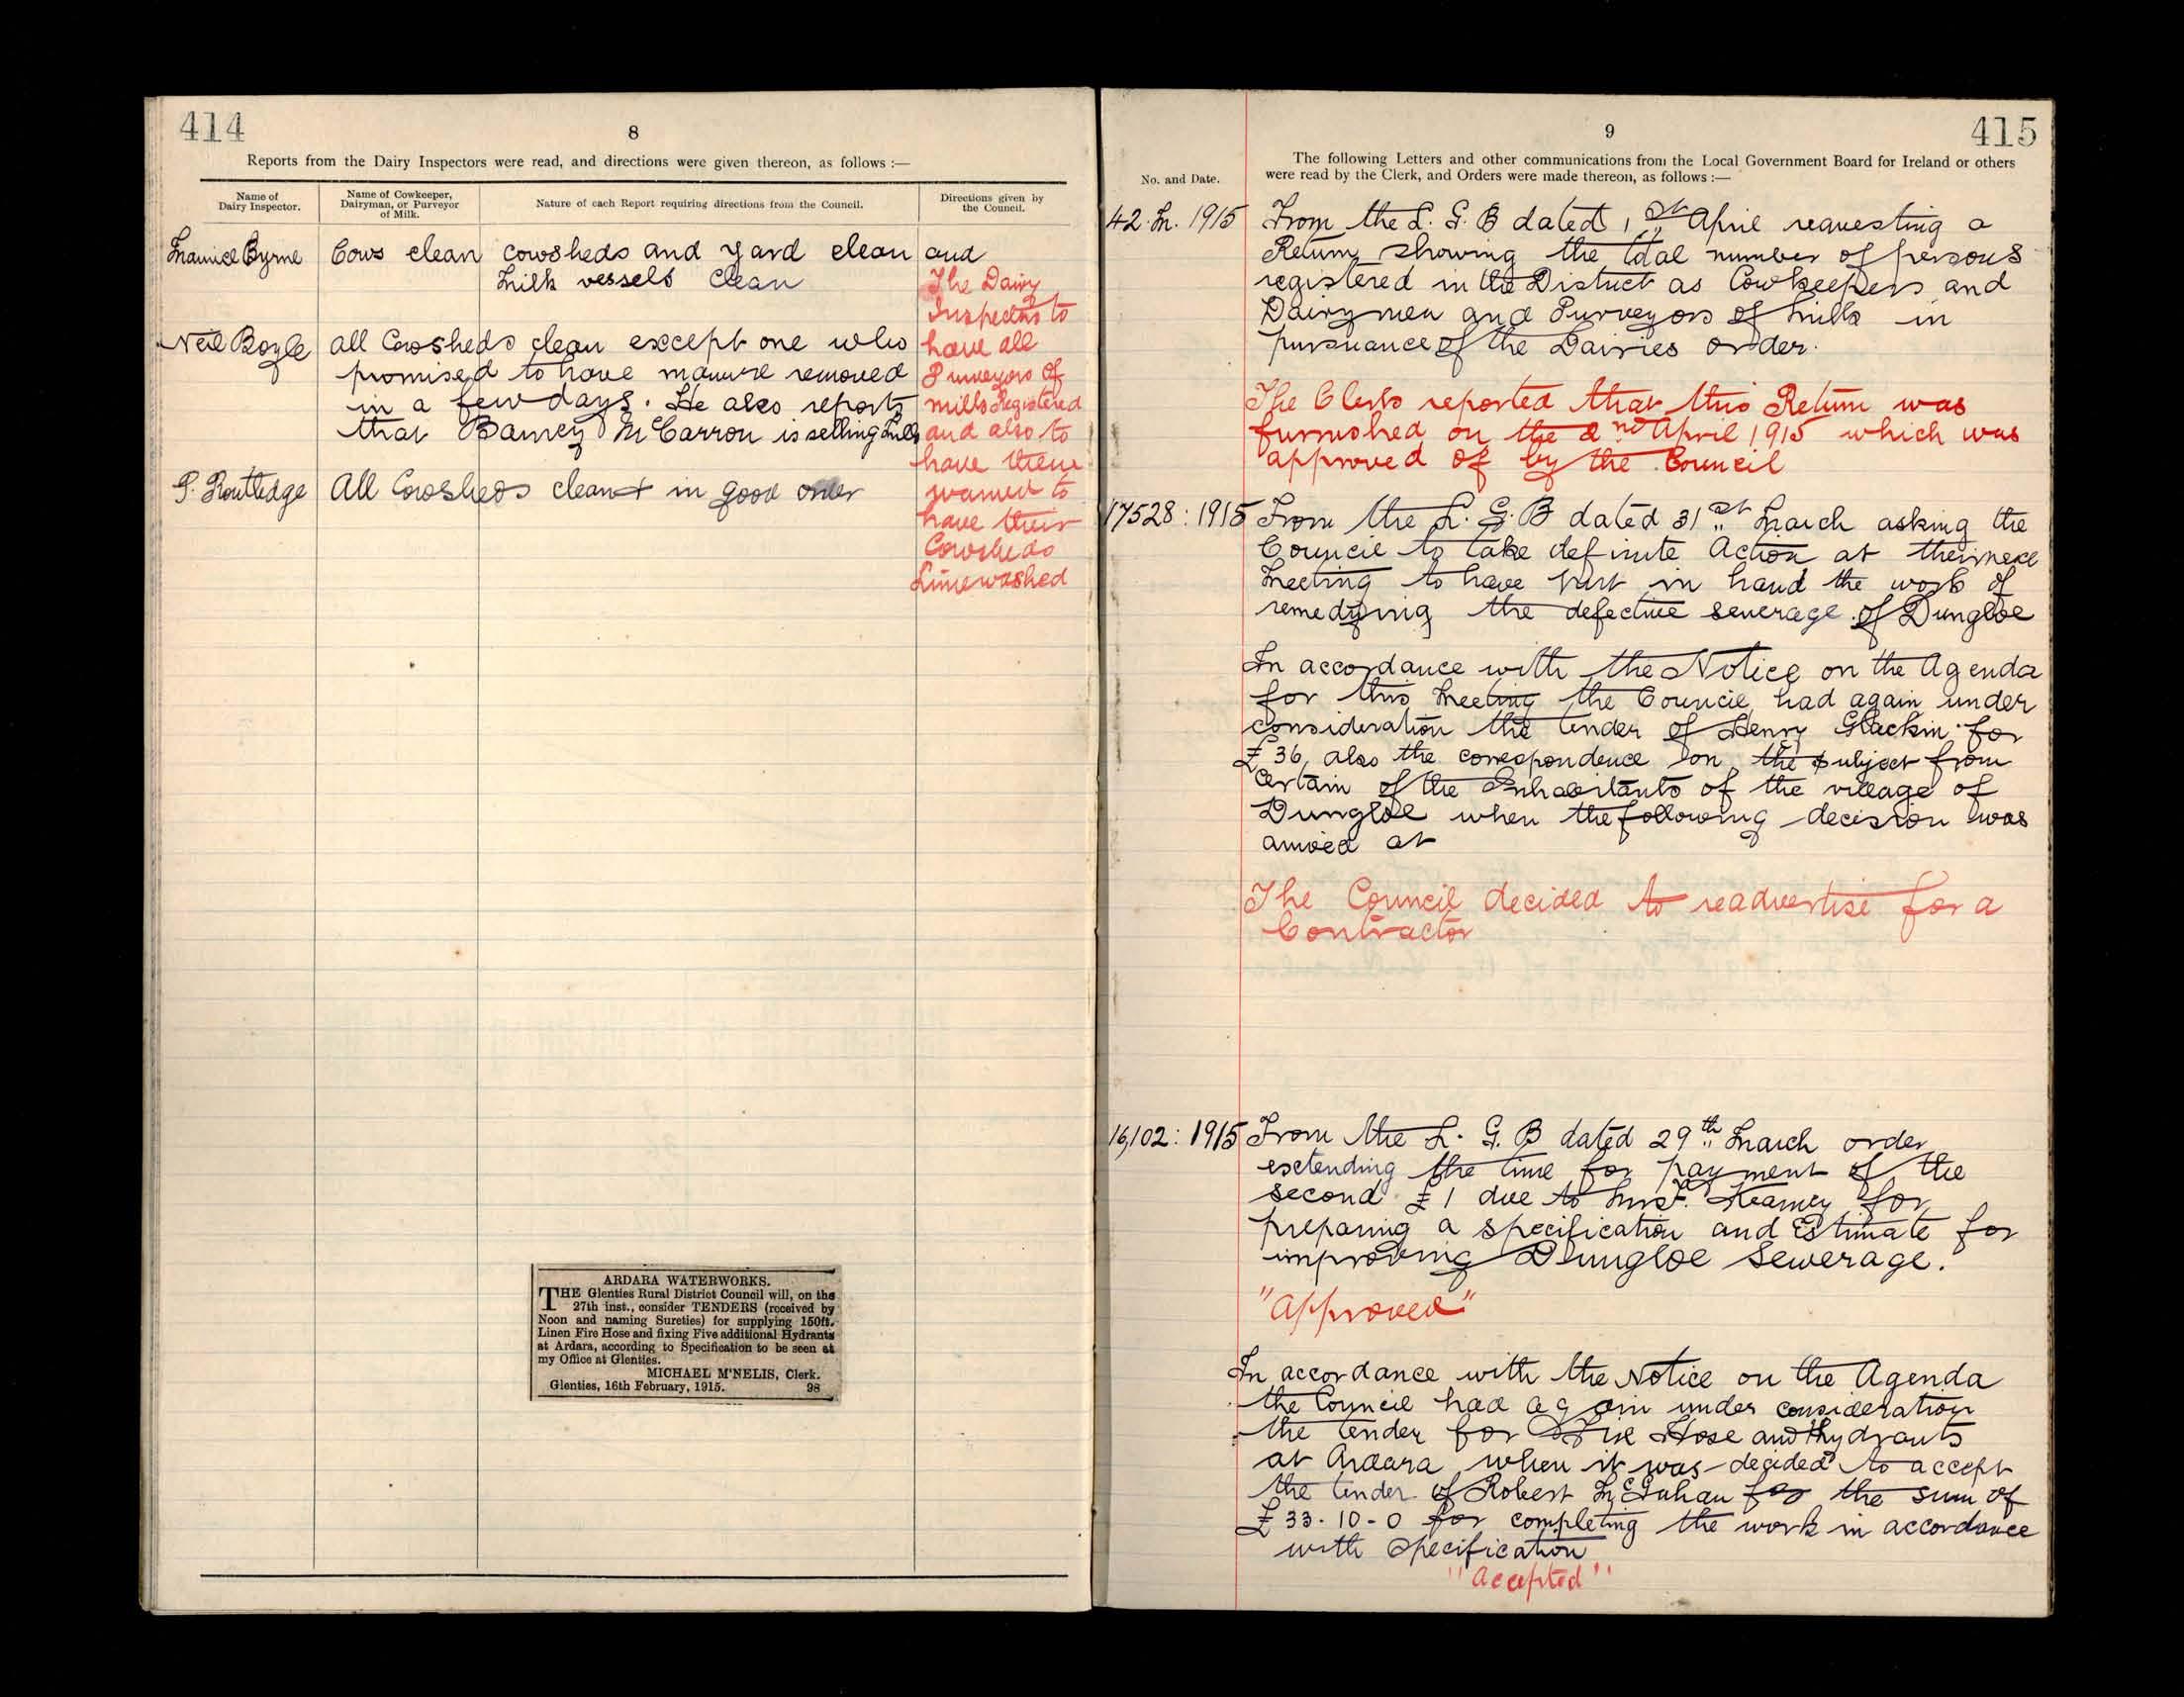 414
8
Reports from the Dairy Inspectors were read, and directions were given thereon, as follows :—
Name of Dairy Inspector.
Name of Cowkeeper, Dairyman, or Purveyor of Milk.
Nature of each Report requiring directions from the Council.
Directions given by the Council.
Maurice Byrne Cows clean cowsheds and yard clean and
Milk vessels clean
Neil Boyle all Cowsheds clean except one who
promised to have manure removed
in a few days. He also reports
that Barney McCarron is selling Milk
P. Routledge All Cowsheds clean & in good order
The Dairy
Inspectors to
have all
Purveyors of
milk Registered
and also to
have them
warned to
have their
Cowsheds
Limewashed
ARDARA WATERWORKS.
THE Glenties Rural District Council will, on the
27th inst., consider TENDERS (received by
Noon and naming Sureties) for supplying 150ft.
Linen Fire Hose and fixing Five additional Hydrants
at Ardara, according to Specification to be seen at
my Office at Glenties.
MICHAEL M'NELIS, Clerk.
Glenties, 16th February, 1915. 98
415
9
The following Letters and other communications from the Local Government Board for Ireland or others
No. and Date. were read by the Clerk, and Orders were made thereon, as follows :—
42. M. 1915 From the L. G. B dated 1st April requesting a
Return showing the total number of persons
registered in the District as Cowkeepers and
Dairymen and Purveyors of Milk in
pursuance of the Dairies order.
The Clerk reported that this Return was
furnished on the 2nd April 1915 which was
approved of by the Council
17528 : 1915 From the L. G. B dated 31st March asking the
Council to take definite Action at their next
Meeting to have put in hand the work of
remedying the defective sewerage of Dungloe
In accordance with the Notice on the Agenda
for this Meeting the Council had again under
consideration the tender of Henry Glackin for
£36, also the correspondence on the subject from
certain of the Inhabitants of the village of
Dungloe when the following decision was
arrived at
The Council decided to readvertise for a
Contractor
16,102 : 1915 From the L. G. B dated 29th March order
extending the time for payment of the
second £1 due to Kearney for
preparing a specification and Estimate for
improving Dungloe Sewerage.
"Approved"
In accordance with the Notice on the Agenda
the Council had again under consideration
the tender for Fire Hose and Hydrants
at Ardara when it was decided to accept
the tender of Robert McGahan for the sum of
£33-10-0 for completing the work in accordance
with Specification
"Accepted"